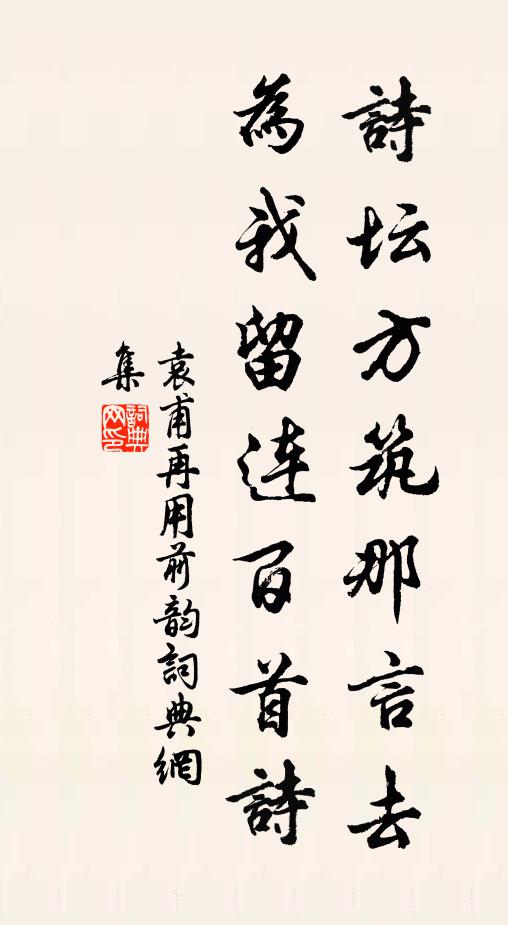 詩坛方筑那言去
為我留连百首詩
袁甫再用前韵詞典網
集
詞典网印